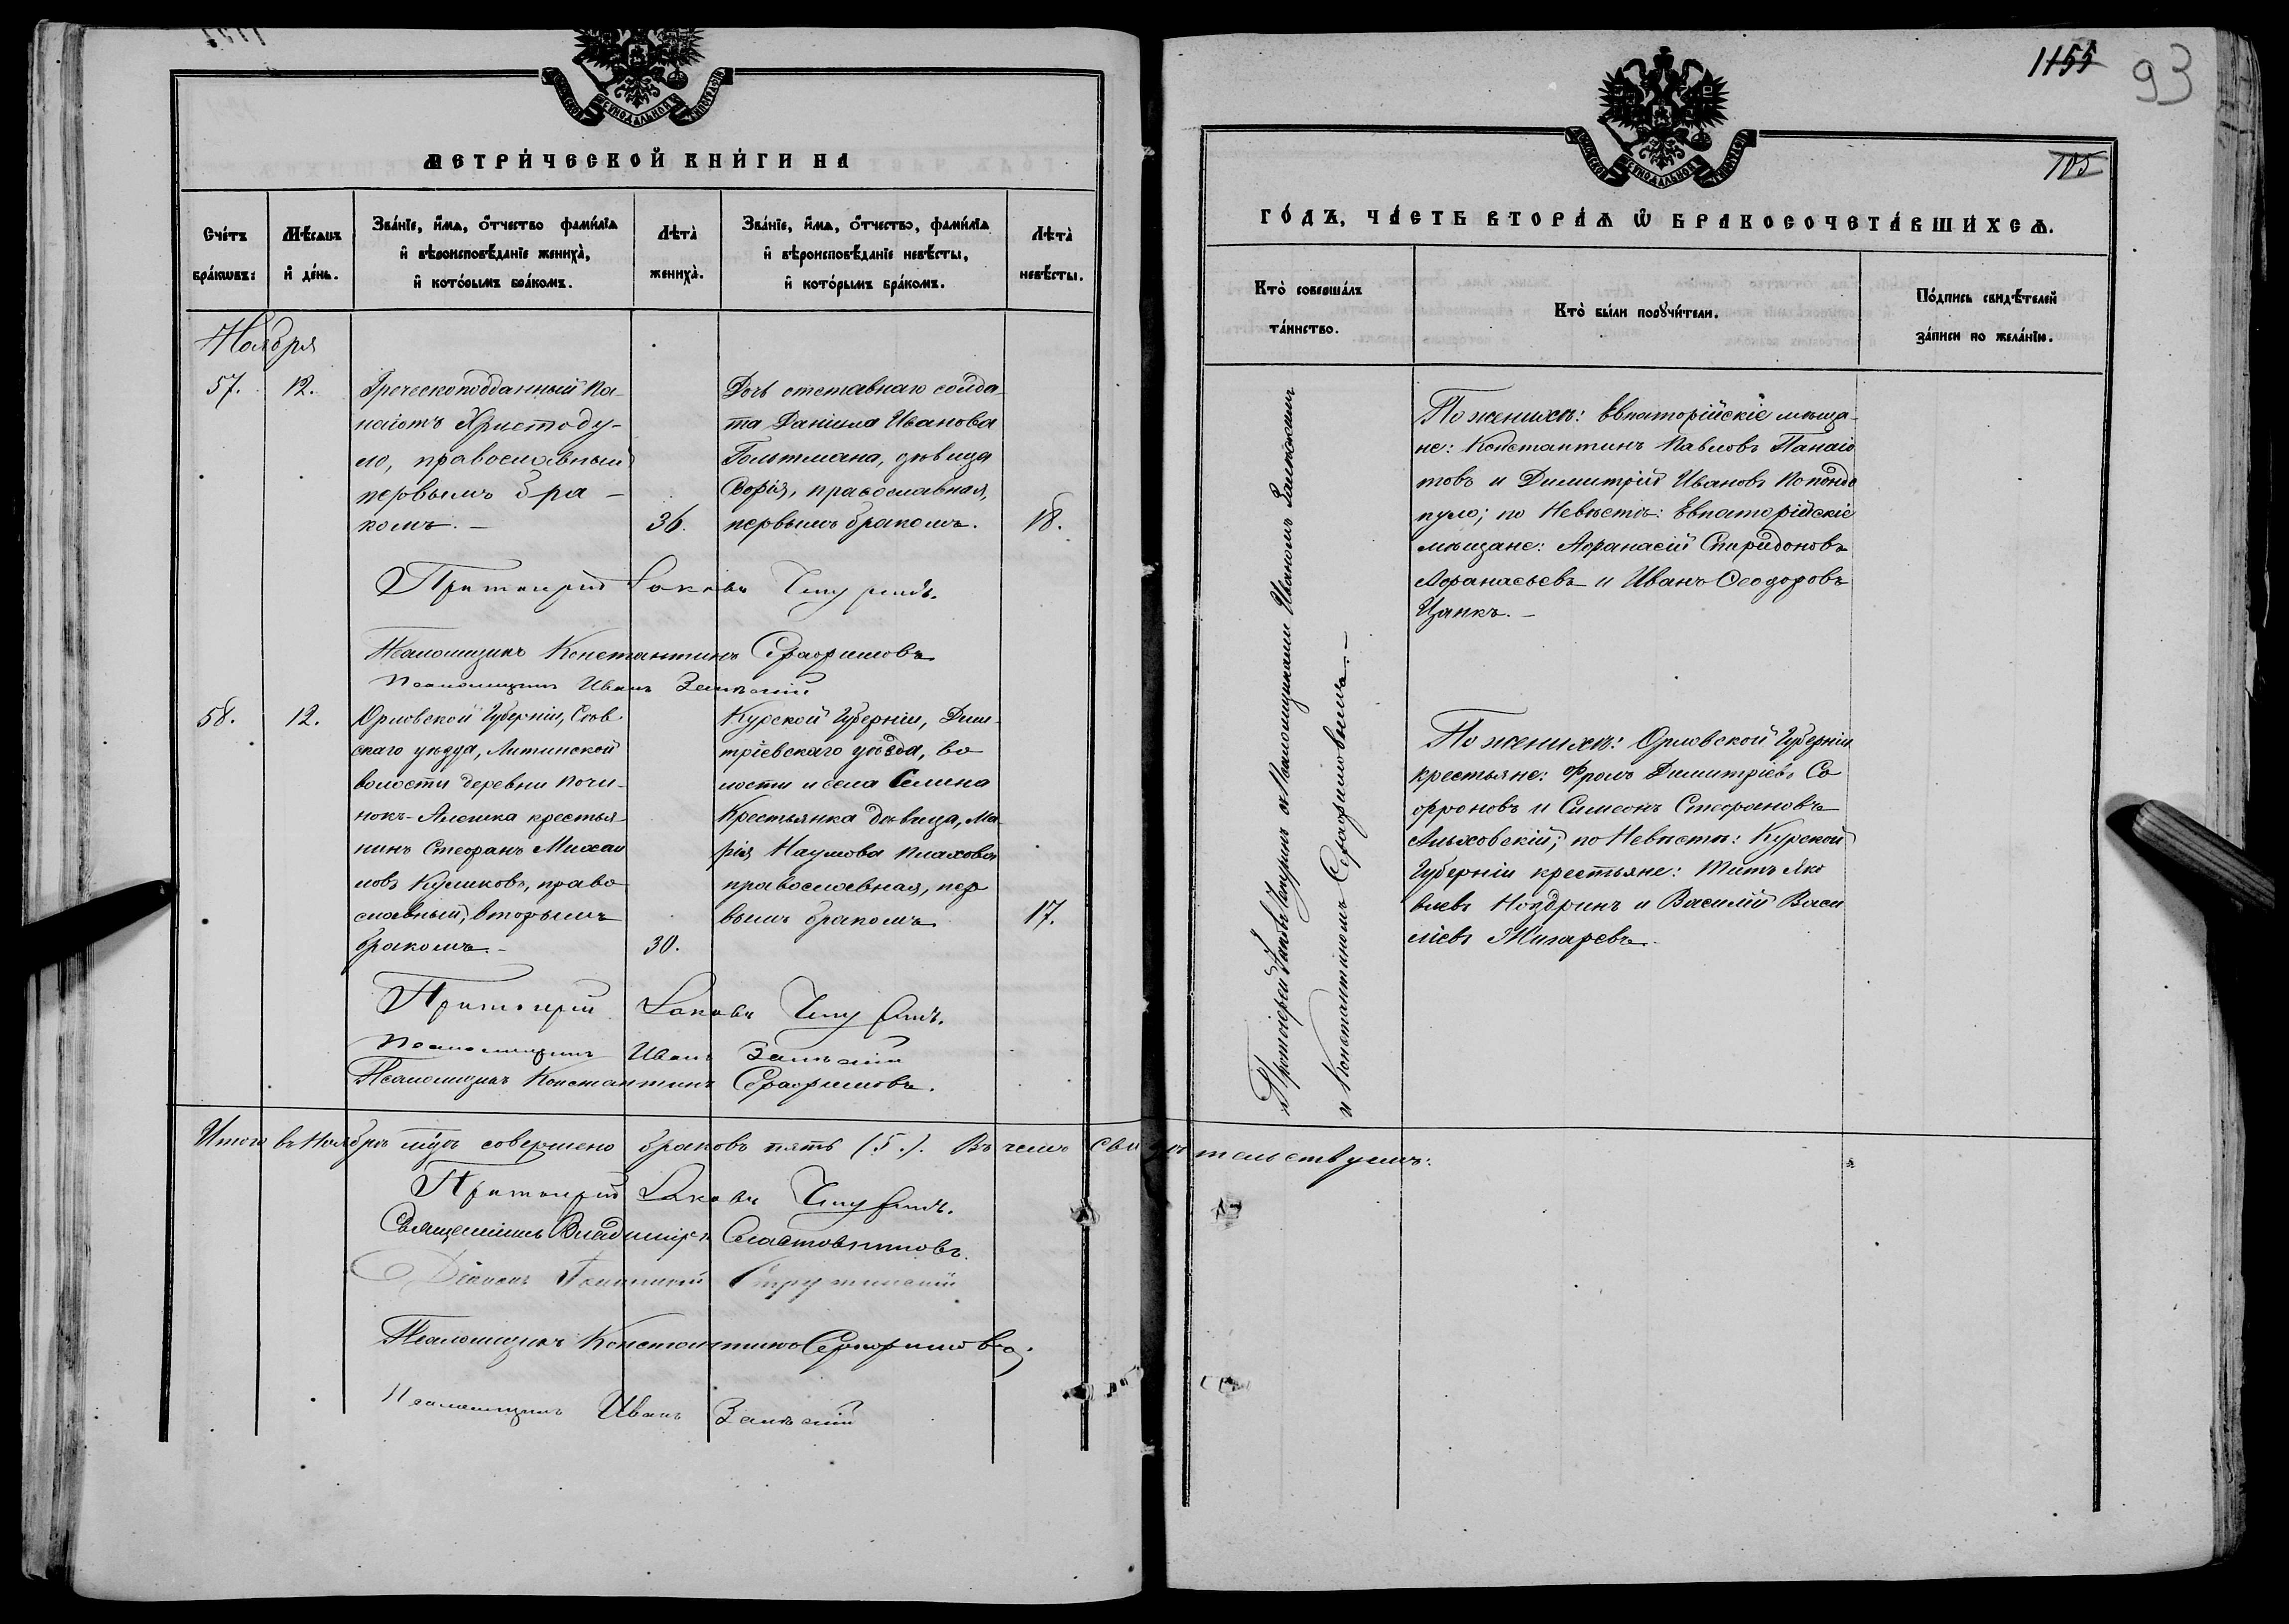 МЕТРИ́ЧЕСКОЙ КНИ́ГИ НА
Сче́тъ бра́кѡвъ:
Мѣ́сяцъ и҆ де́нь.
Зва́нїе, и҆́мя, ѻ҆́тчество фами́лїя и҆ вѣроисповѣ́данїе жениха̀, и҆ кото́рымъ бра́комъ.
Лѣта̀ жениха̀.
Зва́нїе, и҆́мя, ѻ҆́тчество, фами́лїя и҆ вѣроисповѣ́данїе невѣ́сты, и҆ кото́рымъ бра́комъ.
Лѣта̀ невѣ́сты.
Ноября
57.
12.
Греческоподданный Па-
наіотъ Христоду-
ло, православный
первымъ бра-
комъ.-
36.
Дочь отставнаго солда-
та Даніила Иванова
Гольтмана, дѣвица
Софія, православная,
первымъ бракомъ.
18.
Протоіерей Іаковъ Чепуринъ.
Псаломщикъ Константинъ Серафимовъ
Псаломщикъ Иванъ
58.
12.
Орловской Губерніи, Сѣв-
скаго уѣзда, Литижской
волости деревни Почи-
нокъ-Алешка крестья-
нинъ Стефанъ Михаи
ловъ Куликовъ, право
славный, вторымъ
бракомъ.-
30.
Курской Губерніи, Дми-
тріевскаго уѣзда, во
лости и села Селина
Крестьянка дѣвица, Ма-
рія Наумова Плахова
православная, пер
вымъ бракомъ
17.
Протоіерей Іаковъ Чепуринъ.
Псаломщикъ Иванъ
Псаломщикъ Константинъ Серафимовъ.
Итого въ Ноябрѣ мцѣ совершено браковъ пять (5.). Въ чемъ свидѣтельствуемъ:
Протоіерей Іаковъ Чепуринъ.
Священникъ Владиміръ
Діаконъ
Псаломщикъ Константинъ Серафимовъ
Псаломщикъ Иванъ
1155
93
105
ГО́ДЪ, ЧА́СТЬ ВТОРА́Я Ѡ҆ БРАКОСОЧЕТА́ВШИХСЯ.
Кто̀ соверша́лъ та́инство.
Кто̀ бы́ли порꙋчи́тели.
По́дпись свидѣ́телей за́писи по жела́нїю.
Протоіерей Іаковъ Чепуринъ съ Псаломщиками Иваномъ
и Константиномъ Серафимовымъ.-
По женихѣ: Евпаторійскіе мѣща-
не: Константинъ Павловъ Панаіо
товъ и Димитрій Ивановъ Попондо
пуло; по Невѣстѣ: Евпаторійскіе
мѣщане: Афанасій Спиридоновъ
Афанасьевъ и Иванъ Ѳеодоровъ
Цанкъ.-
По женихѣ: Орловской Губерніи
крестьяне: Фролъ Димитріевъ Со
фроновъ и Симеонъ Стефановъ
Альховскій; по Невѣстѣ: Курской
Губерніи крестьяне: Титъ Яко
влевъ Ноздринъ и Василій Васи
ліевъ Жигаревъ.-